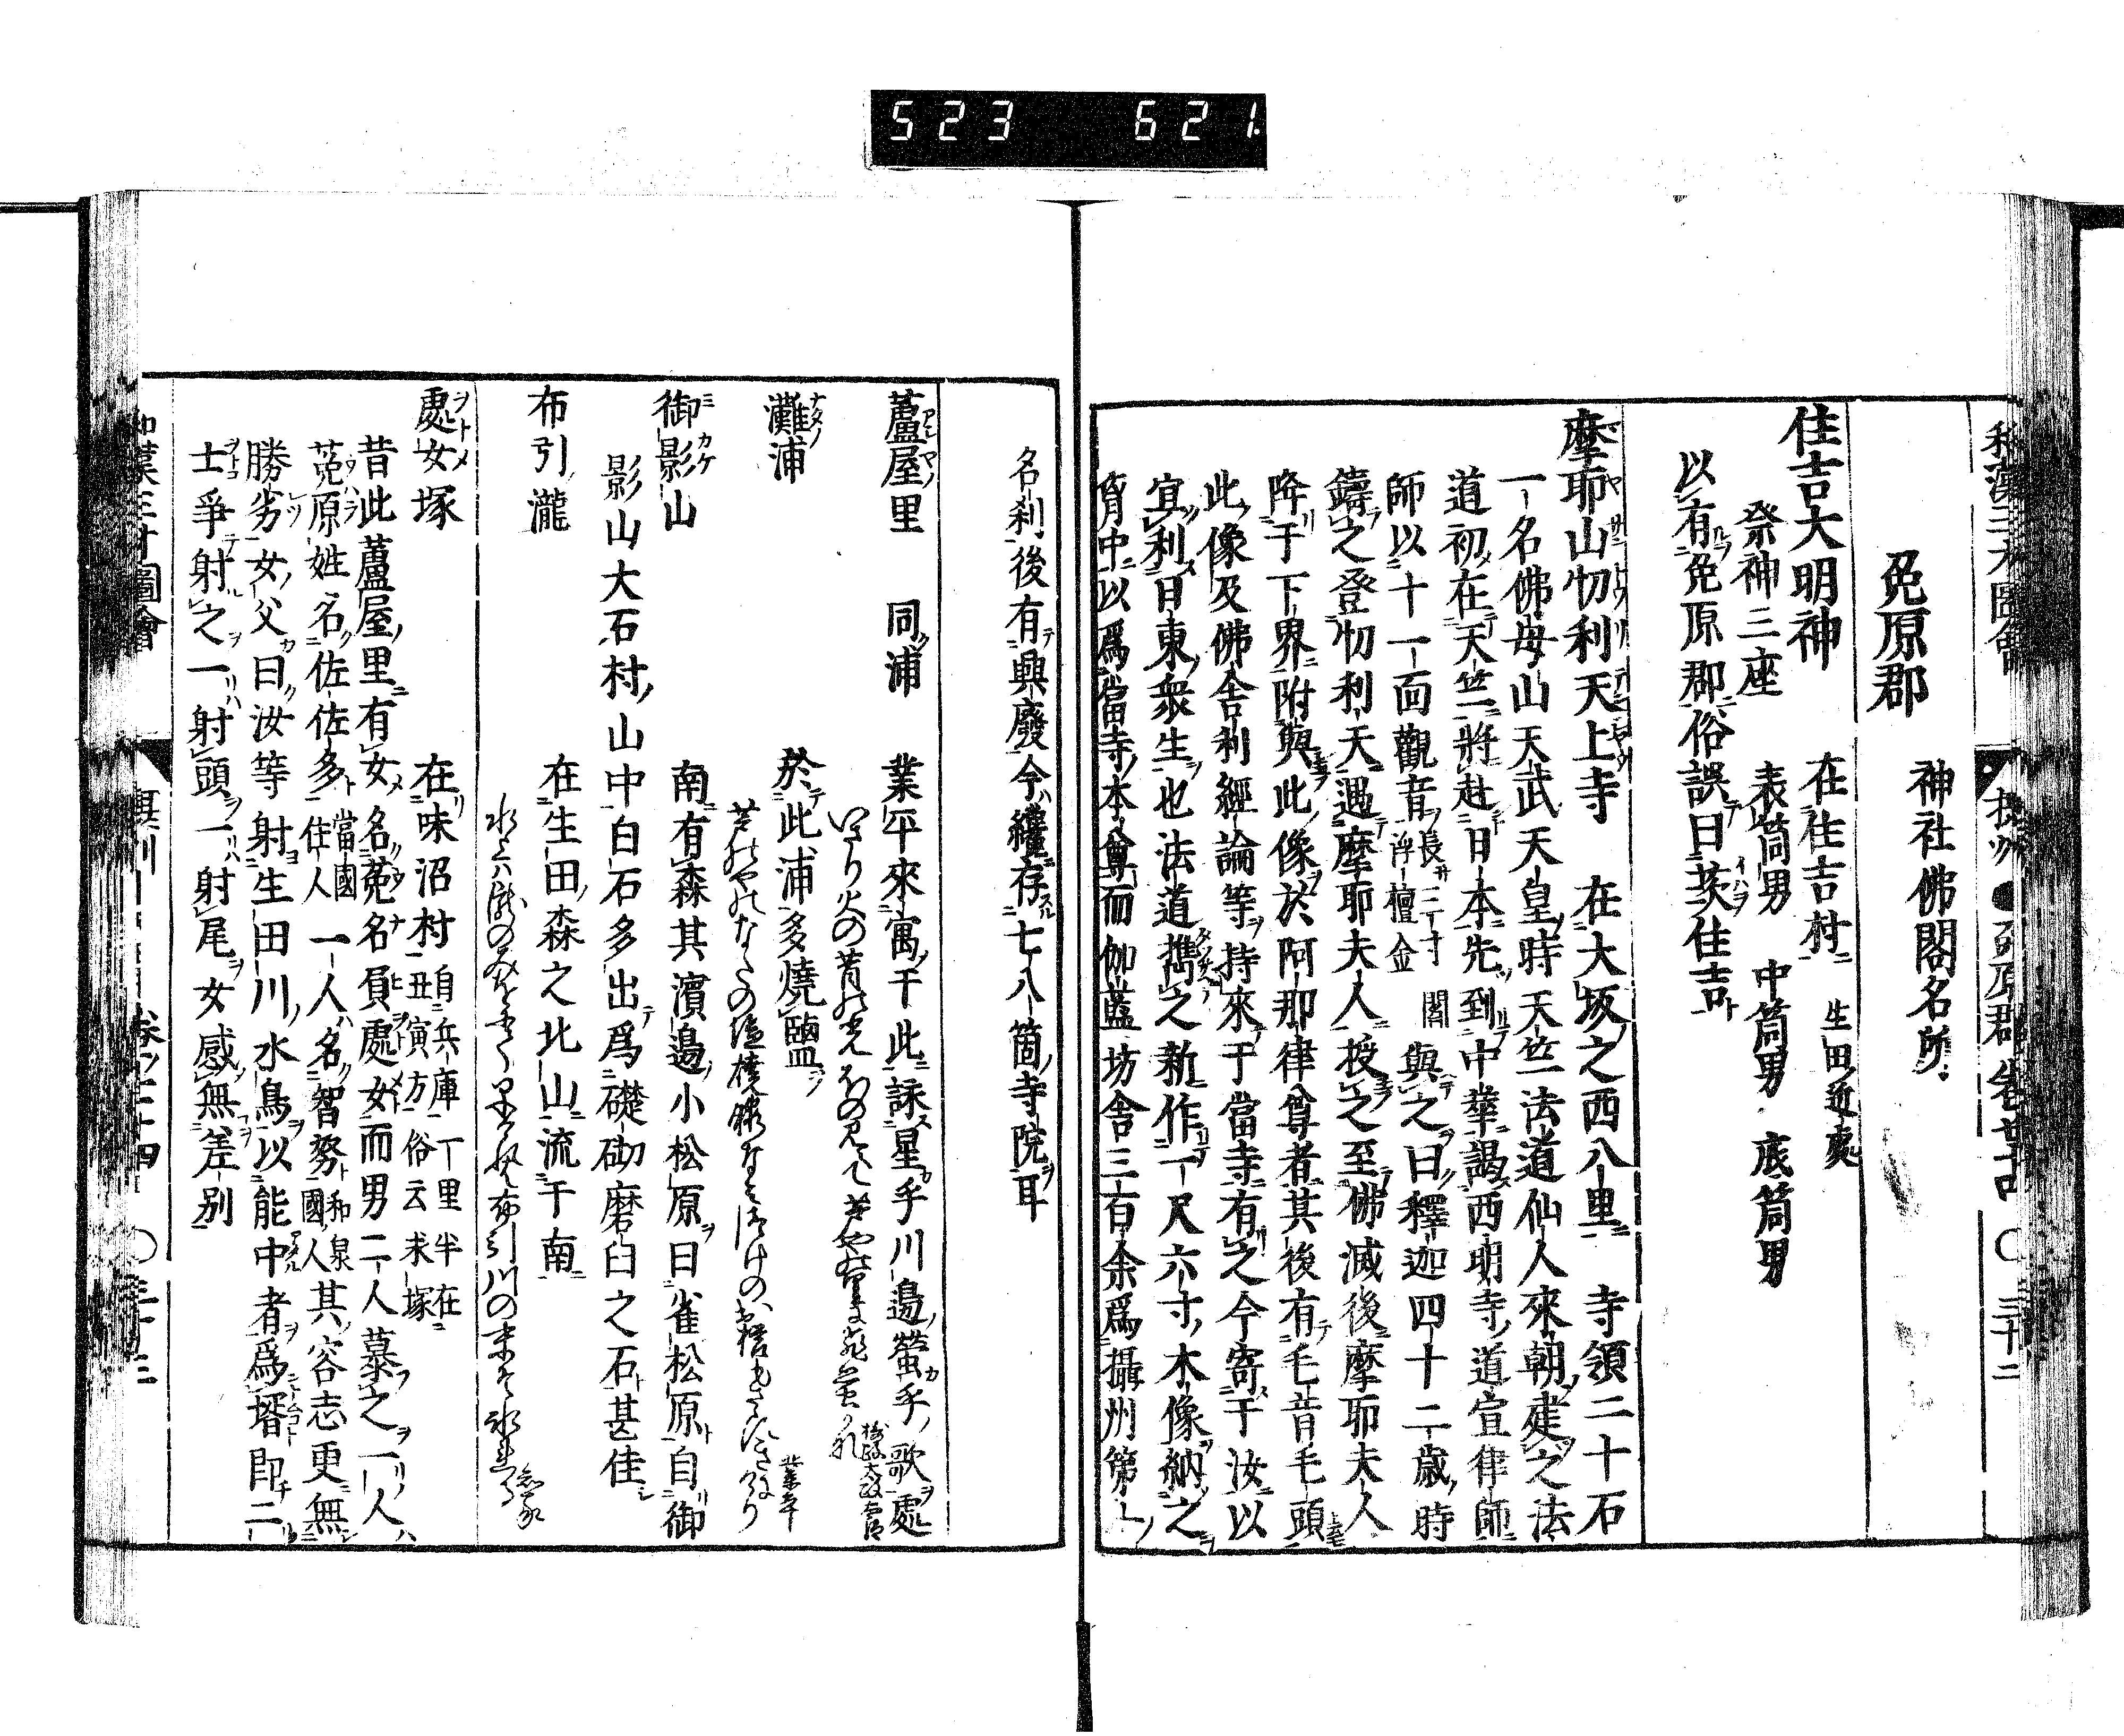 523 621.
菟原郡 神社佛閣名所
住吉大明神 在住吉村 生田近處
祭神三座 表筒男 中筒男 底筒男
以有菟原郡俗誤曰茨住吉
摩耶山忉利天上寺 在大坂之西八里 寺領二十石
一名佛母山天武天皇時天竺法道仙人來朝建之法
道初在天竺將赴日本先到中華謁西明寺道宣律師
師以十一面觀音長二寸閻浮檀金與之曰釋迦四十二歳時
鑄之登忉利天遇摩耶夫人授之至佛滅後摩耶夫人
降于下界附與此像於阿那律尊者其後有毛昔毛頭
此像及佛舎利經論等持來于當寺有之今寄于汝以
宜利日東衆生也法道携之新作一尺六寸木像納之
胷中以爲當寺本尊而伽藍坊舎三百余爲攝州第一
名刹後有興廢今纔存七八箇寺院耳
蘆屋里 同浦 業平來寓于此詠星乎川邊螢乎歌處
いさり火の昔の光ほの見えて芦やの里に飛螢かな 後京極太政大臣
灘浦 於此浦多燒鹽
芦のやのなたの塩焼暇なみつけのお櫛もささすきにけり 業平
御影山 南有森其濱邊小松原曰雀松原自御
影山大石村山中白石多出爲礎砌磨臼之石甚佳
布引瀧 在生田森之北山流于南
處女塚 在味沼村 自兵庫丁里半在丑寅方俗云求塚
昔此蘆屋里有女名菟名負處女而男二人慕之一人
菟原姓名佐佐多當國住人一人名智努和泉國人其容志更無
勝劣女父曰汝等射生田川水鳥以能中者爲壻即二
士爭射之一射頭一射尾女感無差别